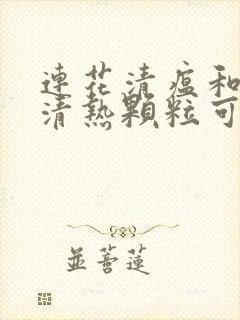 連花清瘟和
清熱顆粒可
並蒂蓮